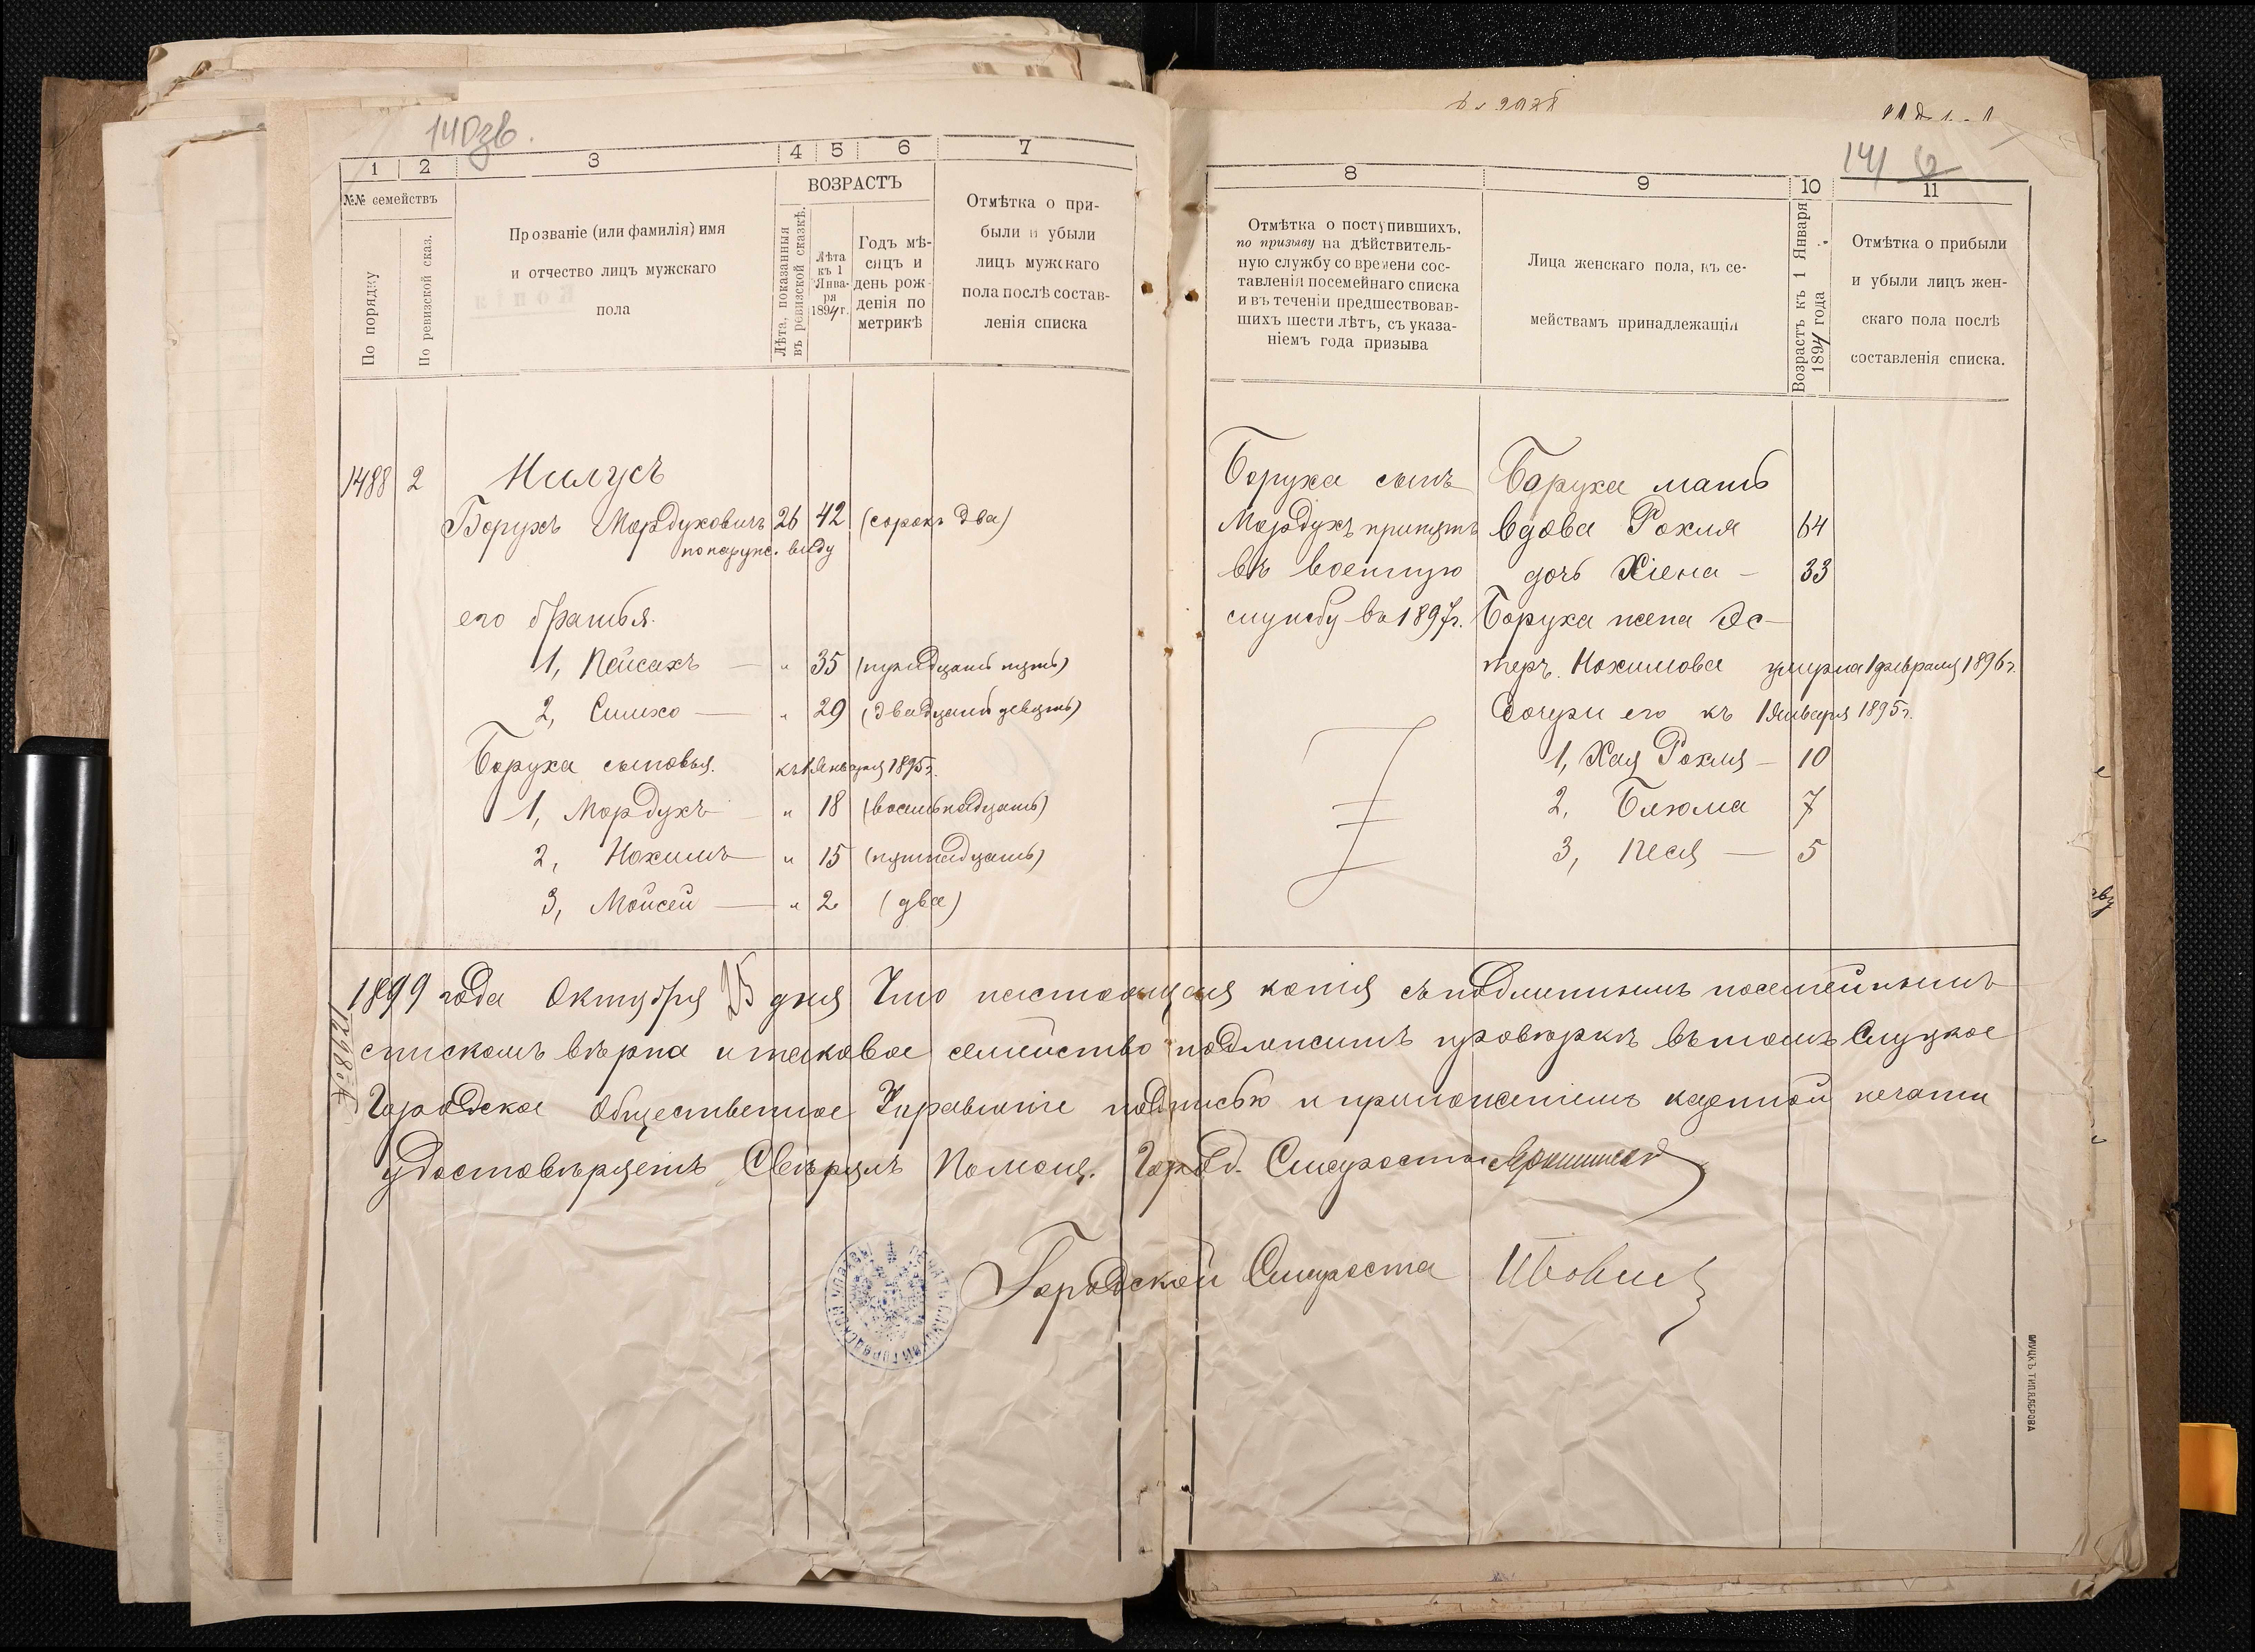 140зв.
1 2 3 4 5 6 7
№№ семействъ
По порядку
По ревизской сказ.
Прозваніе (или фамилія) имя
и отчество лицъ мужскаго
пола
ВОЗРАСТЪ
Лѣта, показанныя
въ ревизской сказкѣ.
Лѣта
къ 1
Янва-
ря
1894 г.
Годъ мѣ-
сяцъ и
день рож-
денія по
метрикѣ
Отмѣтка о при-
были и убыли
лицъ мужскаго
пола послѣ состав-
ленія списка
1488 2 Нилусъ
Борухъ Мордуховичъ 26 42 (сорокъ два)
по наружн. виду
его братья.
1, Пейсахъ — " 35 (тридцать пять)
2, Симхо — " 29 (двадцать девять)
Боруха сыновья. къ 1 Января 1895 г.
1, Мордухъ — " 18 (восемьнадцать)
2, Нохимъ — " 15 (пятнадцать)
3, Мойсей — " 2 (два)
141
8 9 10 11
Отмѣтка о поступившихъ,
по призыву на дѣйствитель-
ную службу со времени сос-
тавленія посемейнаго списка
и въ теченіи предшествовав-
шихъ шести лѣтъ, съ указа-
ніемъ года призыва
Лица женскаго пола, къ се-
мействамъ принадлежащія
Возрастъ къ 1 Января
1894 года
Отмѣтка о прибыли
и убыли лицъ жен-
скаго пола послѣ
составленія списка.
Боруха сынъ
Мордухъ принятъ
въ военную
службу въ 1897 г.
Боруха мать
вдова Рохля 64
дочь Хіена — 33
Боруха жена Эс-
теръ Нохимова умерла 1 февраля 1896 г.
Дочери его къ 1 Января 1895 г.
1, Хая Рохля — 10
2, Блюма 7
3, Песя — 5
1899 года Октября 25 дня Что настоящая копія съ подлиннымъ посемейнымъ
спискомъ вѣрна и таковое семейство подлежитъ провѣркѣ въ томъ Слуцкое
Городское Общественное Управленіе подписью и приложеніемъ казенной печати
удостовѣряетъ Свѣрялъ Помощ. Город. Старосты
Городской Староста
СЛУЦКЪ ТИП. ЯЕРОВА